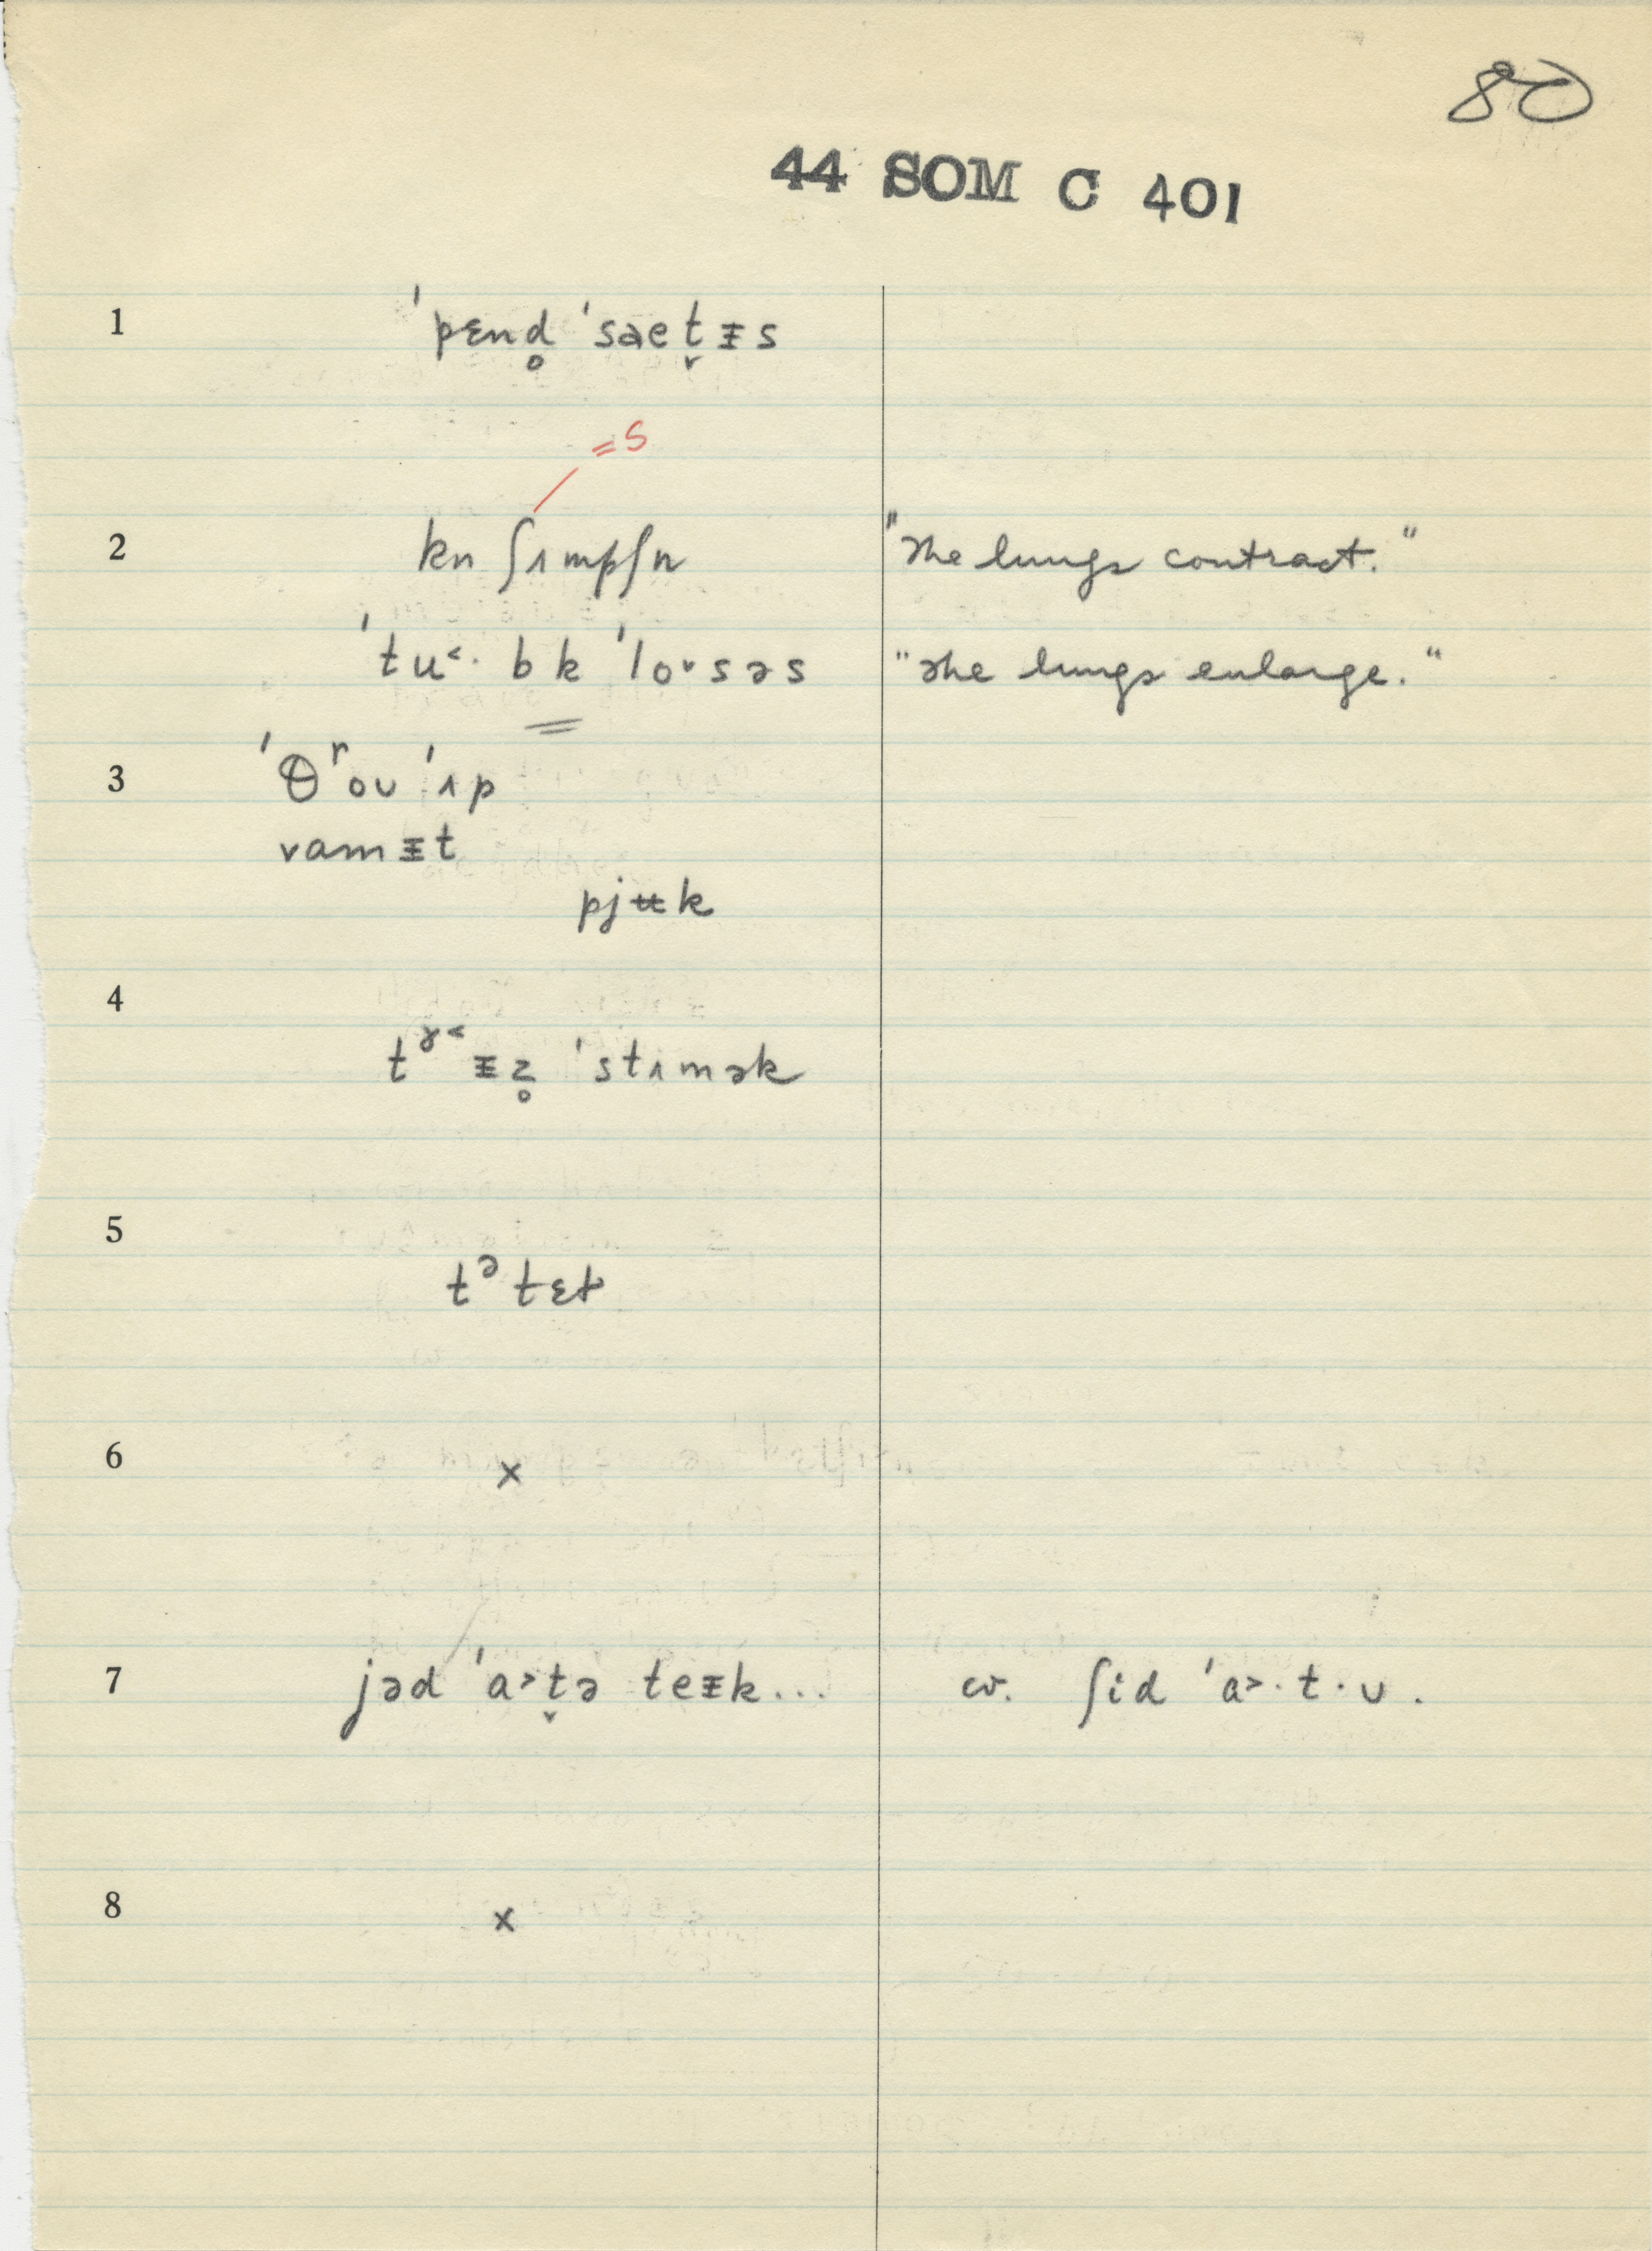 80
44 SOM C 401
1 ˈpɛnd̥ ˈsaet̬ᵻs
=s
2 kn ʃʌmpʃn "The lungs contract."
ˈtu˂· b k ˈlo˅səs "The lungs enlarge."
3 ˈθʳoʊ ˈʌp
vamᵻt
pjʉk
4
tˠ˂ᵻz̥ ˈstʌmək
5
tᵊtɛt
6 ×
7 jəd ˈa˃t̬ə teᵻk... cv. ʃid ˈa˃·t·ʊ.
8 ×